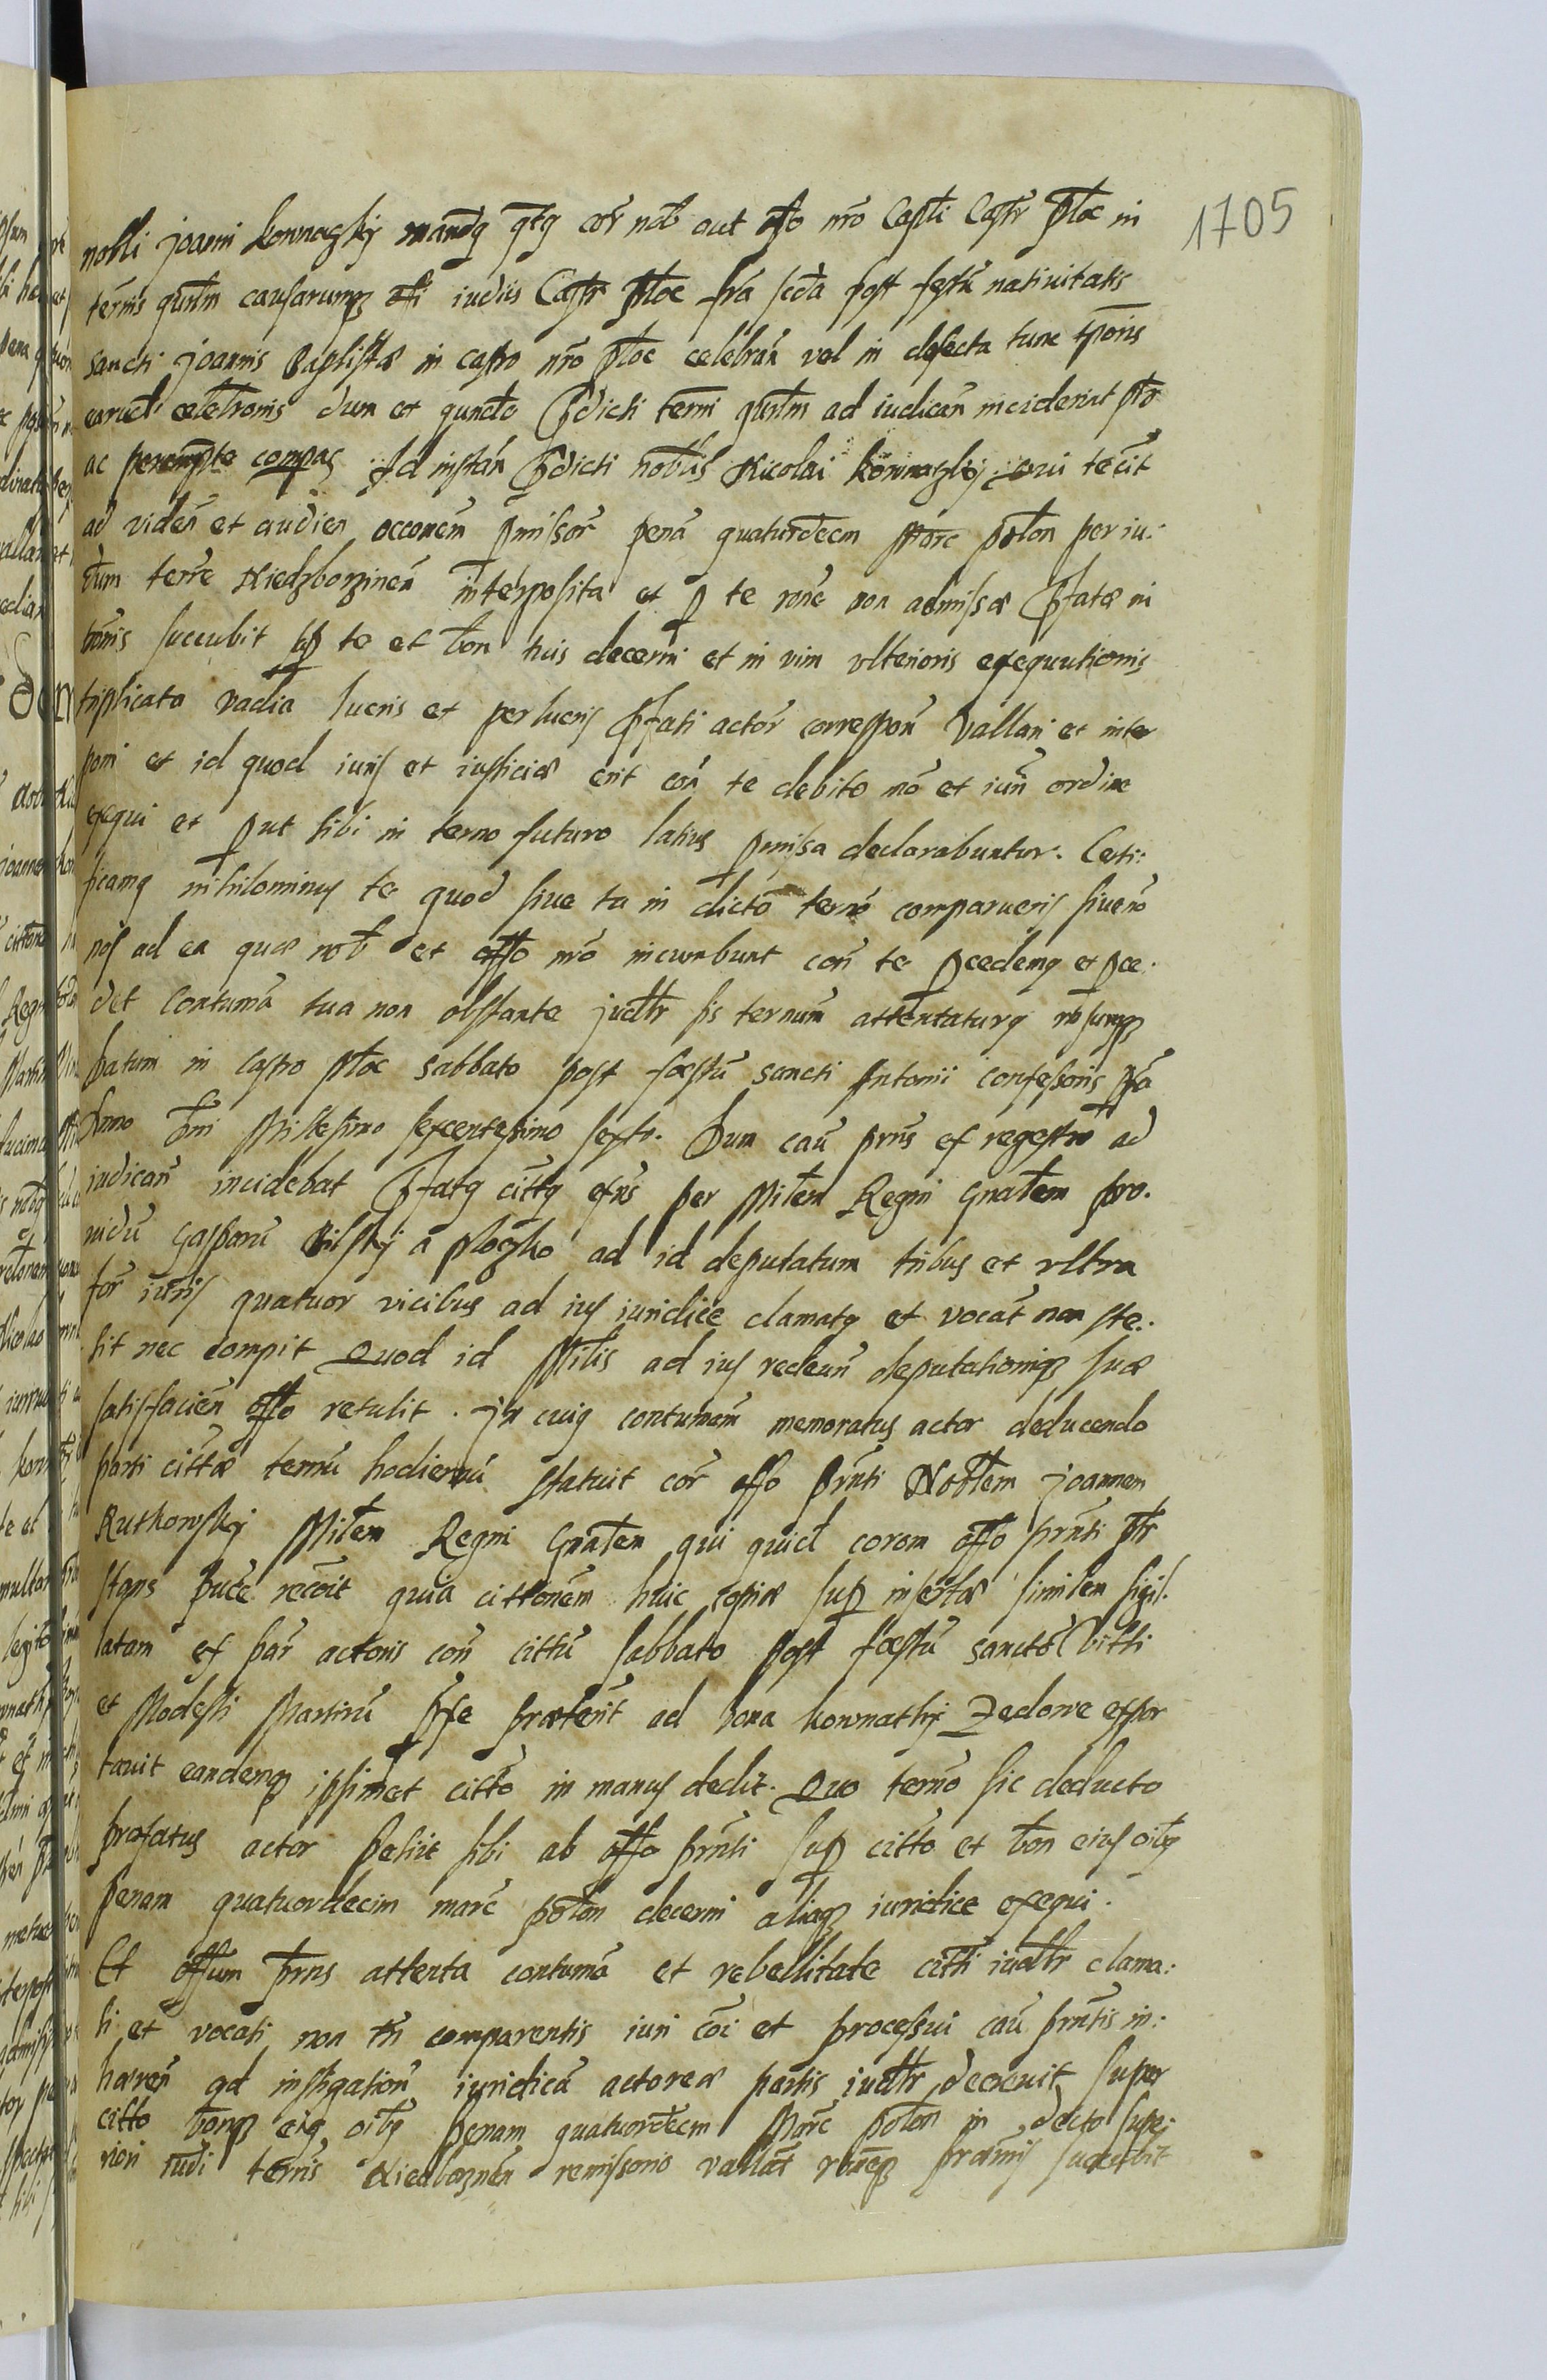 1705
nobli joanni kownaczkÿ mandq qtq cor nob aut offo nro Capti Castr Ploc in
termis qurlm causarumq offi iudiis Castr Ploc fria scda post festu natiuitatis
sancti joannis Baptistæ in castro nro Ploc celebran vel in defectu tunc tporis
earud celebronis dum et quando Pdicti termi qurlm ad iudican inciderint pto
ac perempte compas Ad instan Pdicti noblis Nicolai kownaczkÿ qui te cit
ad viden et audien occonem pmissor pena quaturdecem Marc polon per iu:
dum terre Niedzborzinen interposita et p te rone non admissæ Pfatæ in
bonis succubit sup te et bon tuis decerni et in vim vlterioris exequutionis
triplicata vadia lucris et perlucris Pfati actor correspon vallari et inter
poni et id quod iuris et iusticiæ erit con te debito mo et iun ordine
exequi et put tibi in termo futuro latius pmissa declarabuntur. Certi:
ficamq nihilominus te quod siue tu in dicto termo comparueris siue no
nos ad ea quæ nob et offo nro incumbunt con te pcedemq et pce.
det contuma tua non obstante judlr sis ternum attentaturq rbsumq
Datum in castro Ploc sabbato post fæstu sancti Antonii confessoris pxa
Anno Dni Millesimo sexcentesimo sexto. Dum cau prns ex regestro ad
iudican incidebat Pfatq cittq exns per Milem Regni Gnalem pro.
uidu Gasparu Bilskÿ a Ploczko ad id deputatum tribus et vltra
for iuris quatuor vicibus ad ius iuridice clamatq et vocat non ste:
tit nec compit Quod id Milis ad ius redeun deputationiq suæ
satisfacien offo retulit. In cuiq contumam memoratus actor deducendo
parti cittæ termu hodiernu statuit cor offo prnti Noblem joannem
Rutkowskÿ Milem Regni Gnalem qui quid coram offo prnti ptr
stans puce recoit quia cittonem huic copiæ sup insertæ similem sigil.
latam ex par actoris con cittu sabbato post fæstu sancto Vitti
et Modesti Martiru pxe præterit ad bona kownathÿ Zedowe expor
tauit eandemq ipsimet citto in manus dedit. Quo termo sic deducto
præfatus actor petiit sibi ab offo prnti sup citto et bon eius oibq
penam quatuordecim marc polon decerni aliaq iuridice exequi.
Et offum prns attenta contuma et rebellitate citti iudlr clama:
ti et vocati non tn comparentis iuri coi et processui cau prntis in:
hæren ad instigation iuridica actoreæ partis iudlr decreuit super
citto bonq eiq oibq penam quatuordecem Marc polon in decto supe:
riori iudi terris Niedborznen remissorio vallat roneq præmis succubit